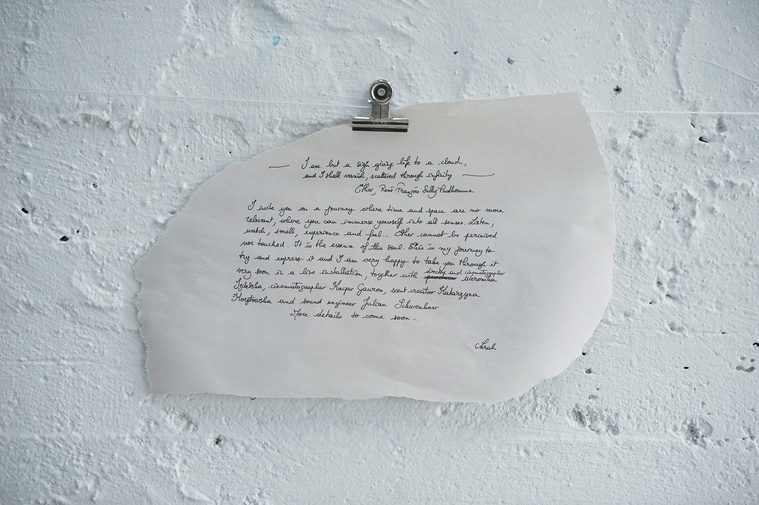 — I am but a sigh giving life to a cloud,
and I shall vanish, scattered through infinity —
Ether, René-François Sully-Prudhomme
I invite you on a journey where time and space are no more
relevant, where you can immerse yourself into all senses. Listen,
watch, smell, experience and feel... Ether cannot be perceived
nor touched. It is the essence of the soul. This is my journey to
try and express it and I am very happy to take you through it
very soon in a live installation, together with director and cinematographer Weronika
cinematographer Kacper Gawron, scent creator Katarzyna
and sound engineer Julian
More details to come soon...
Sarah